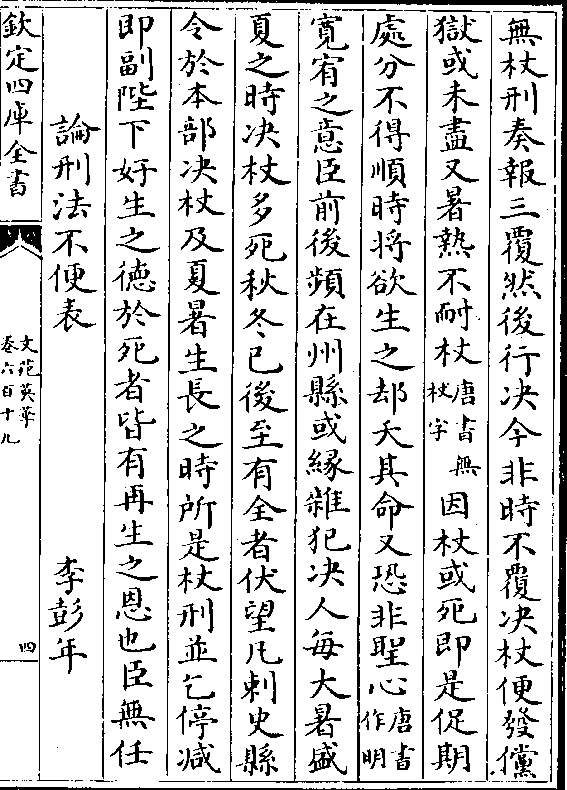 無杖刑奏報三覆然後行决今非時不覆决杖便發儻
獄或未盡又暑熱不耐杖唐書無杖字因杖或死即是促期
處分不得順時将欲生之却夭其命又恐非聖心唐書作明
寛宥之意臣前後頻在州縣或緣雜犯决人每大暑盛
夏之時决杖多死秋冬已後至有全者伏望凡刺史縣
令於本部决杖及夏暑生長之時所是杖刑並乞停减
即副陛下好生之德於死者皆有再生之恩也臣無任
論刑法不便表 李彭年
欽定四庫全書
文苑英華
卷六百十九
四